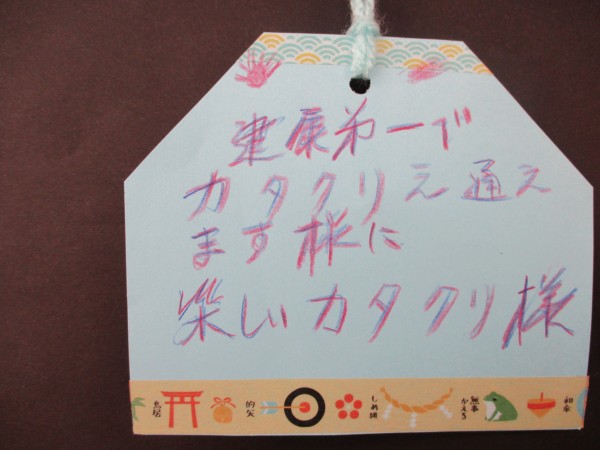 建康弟一で
カタクリえ通え
ます様に
楽しいカタクリ様
鳥居
的矢
しめ縄
無事
かえる
和傘